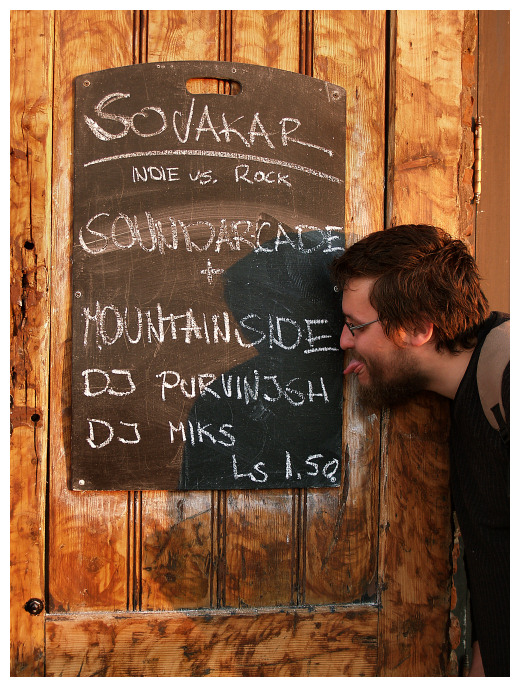 SOVAKAR
INDIE vs. ROCK
SOUNDARCADE
+
MOUNTAINSIDE
DJ PURVINJGH
DJ MIKS
Ls 1.50